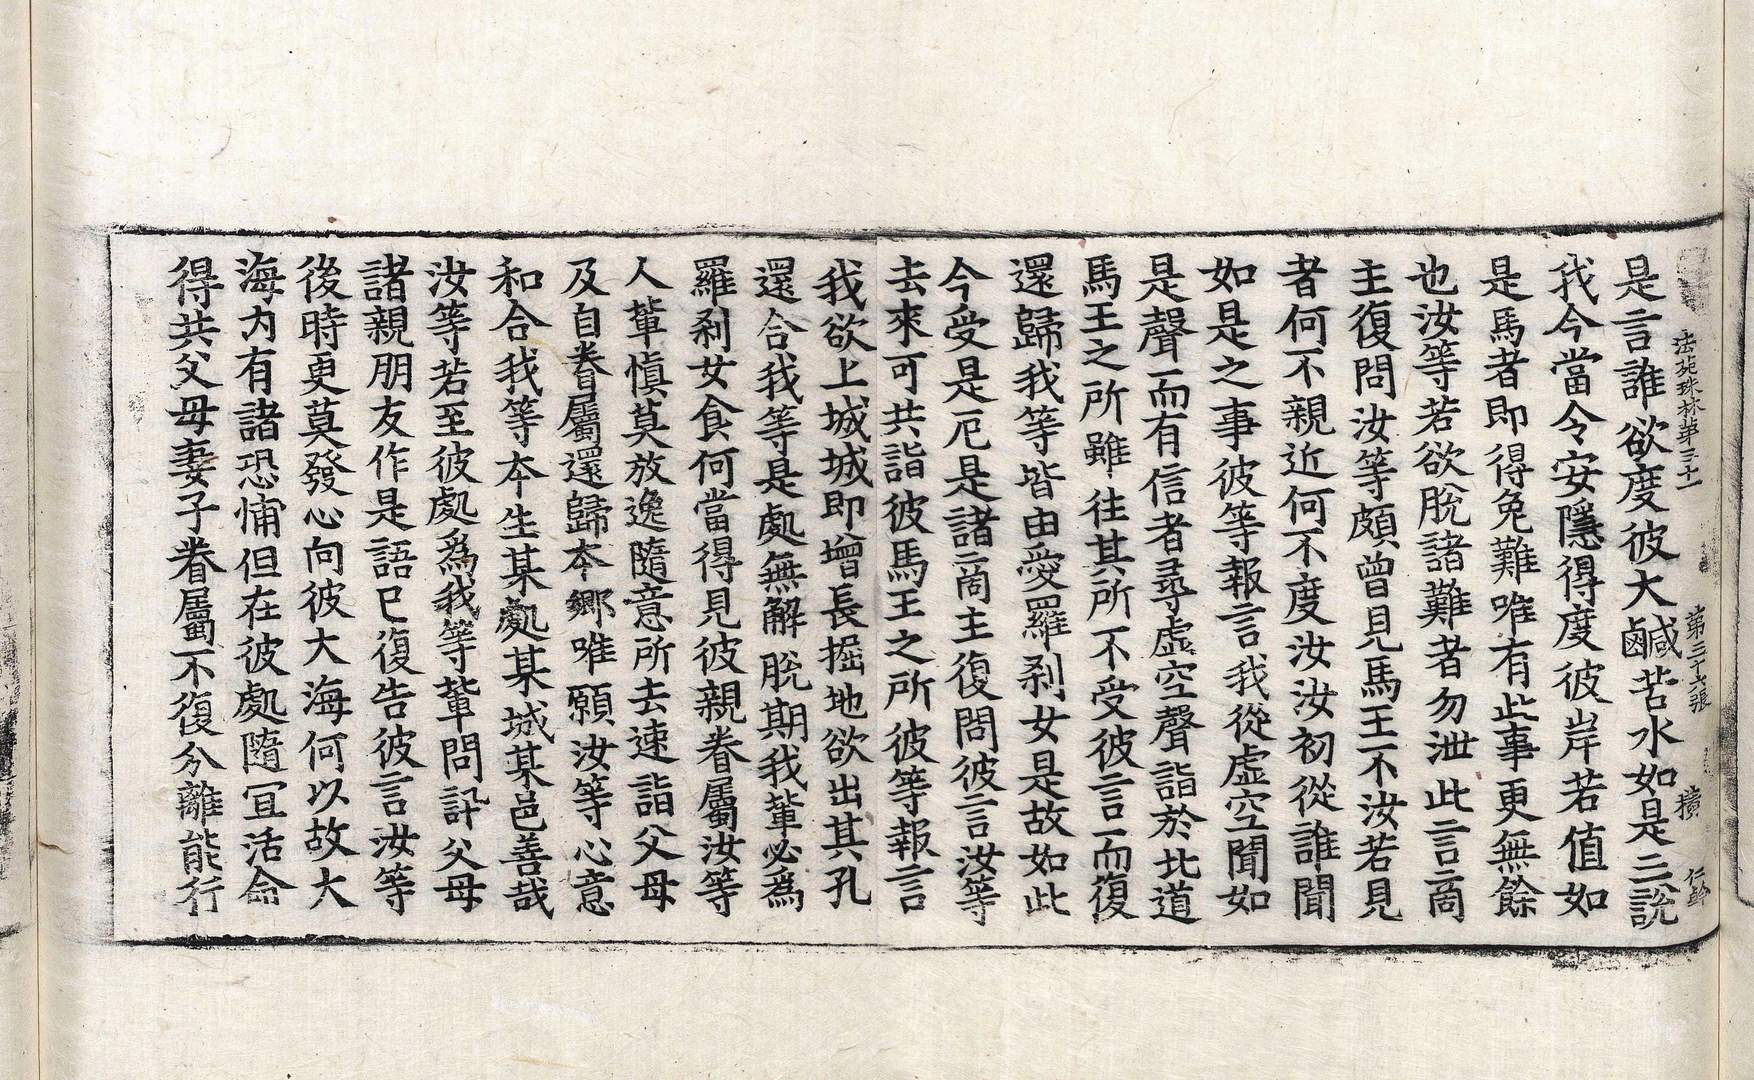 法苑珠林第三十一 第三十六張 㩲 仁幹
是言誰欲度彼大鹹苦水如是三說
我今當令安隱得度彼岸若值如
是馬者即得免難唯有此事更無餘
也汝等若欲脫諸難者勿泄此言啇
主復問汝等頗曾見馬王不汝若見
者何不親近何不度汝汝初從誰聞
如是之事彼等報言我從虛空聞如
是聲而有信者尋虛空聲詣於北道
馬王之所雖往其所不受彼言而復
還歸我等皆由愛羅刹女是故如此
今受是厄是諸啇主復問彼言汝等
去來可共詣彼馬王之所彼等報言
我欲上城城即增長掘地欲出其孔
還合我等是處無解脫期我輩必為
羅刹女食何當得見彼親眷屬汝等
人輩愼莫放逸隨意所去速詣父母
及自眷屬還歸本鄉唯願汝等心意
和合我等本生某處某城某邑善哉
汝等若至彼處爲我等輩問訊父母
諸親朋友作是語已復告彼言汝等
後時更莫發心向彼大海何以故大
海內有諸恐怖但在彼處隨冝活命
得共父母妻子眷屬不復分離能行